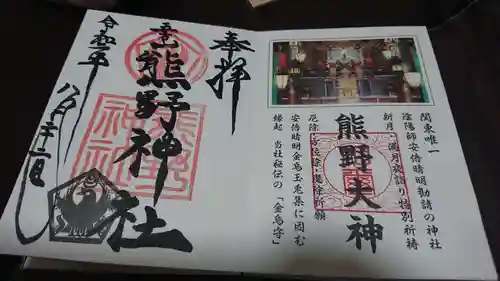 奉拝
熊野神社
令和二年
八月二十二日
熊野神社
関東唯一
陰陽師安倍晴明勧請の神社
新月・満月夜詣り特別祈祷
熊野大神
厄除・方位除・縁結祈願
安倍晴明金烏玉兎集に因む
縁起 当社秘伝の「金烏守」